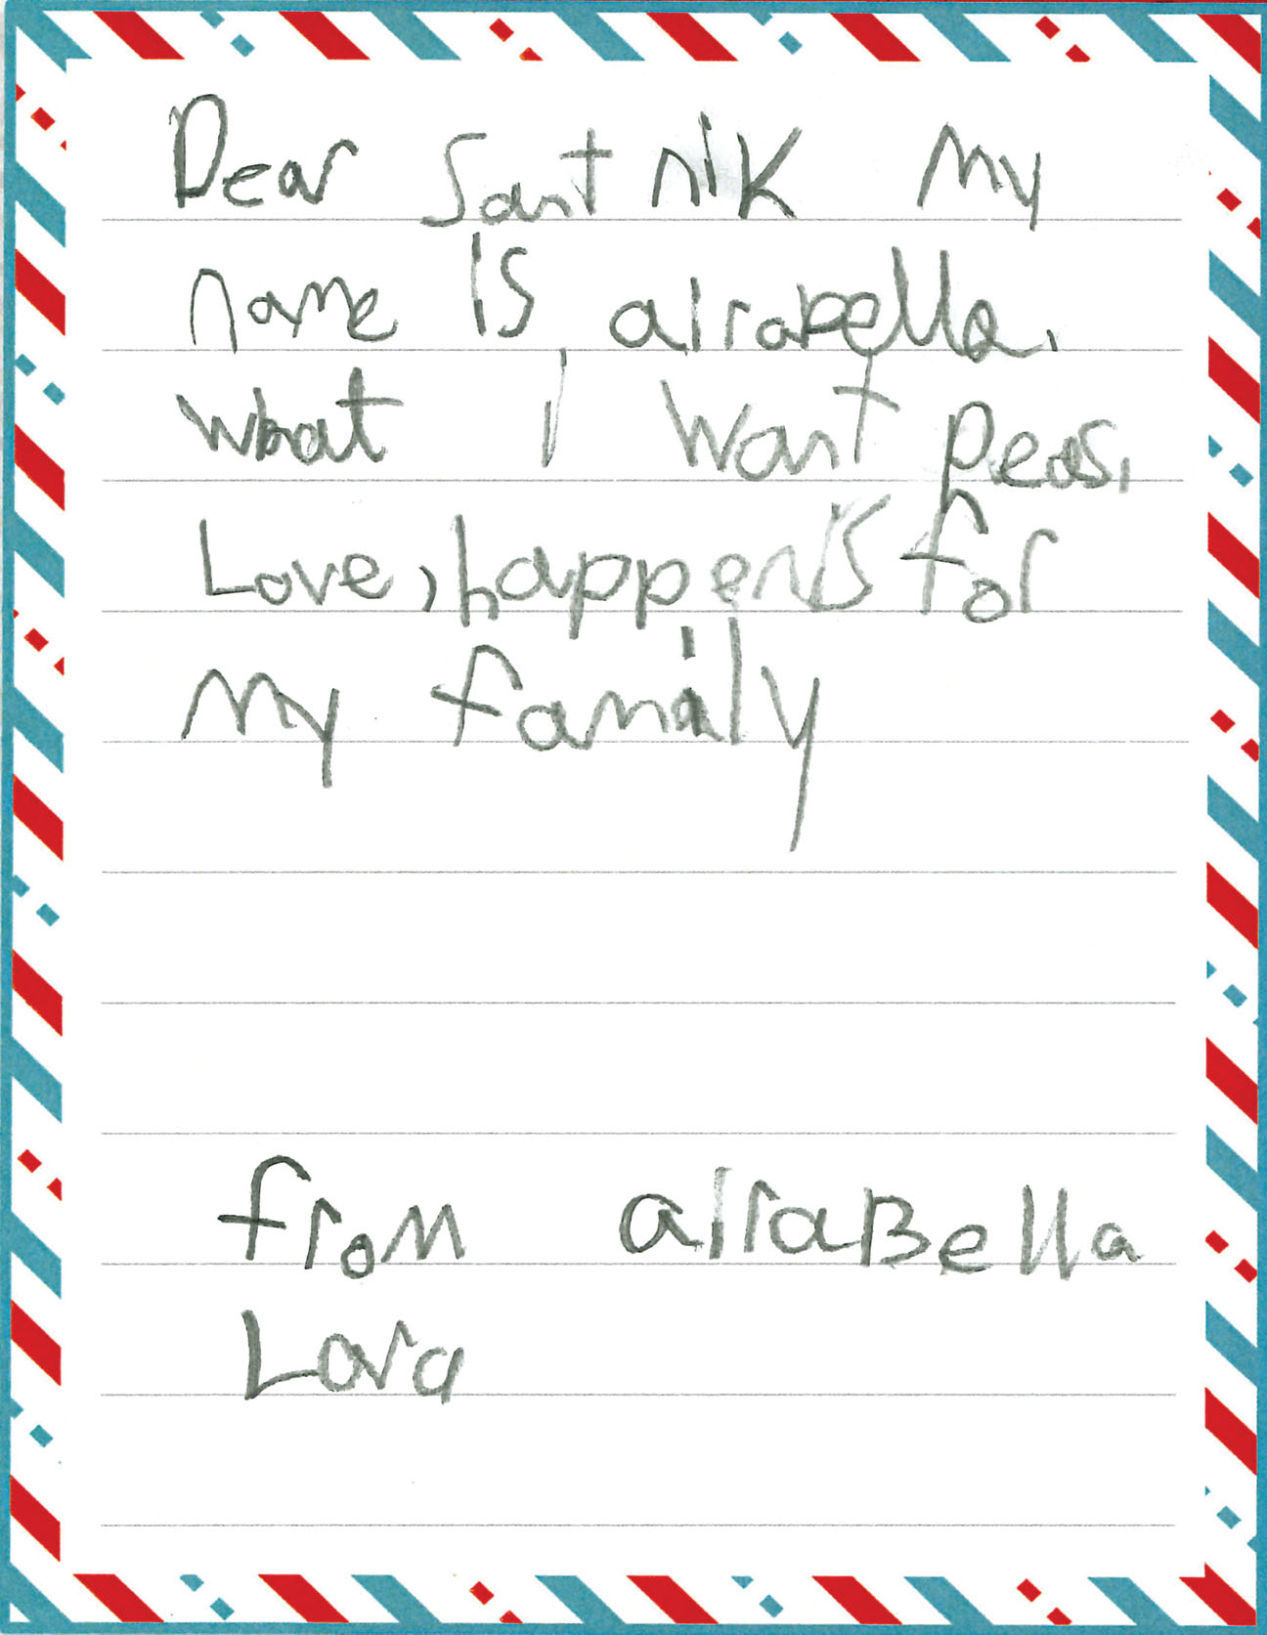 Dear Sant nik My
name is airabella.
what I want peas,
Love, happenis for
my family
from airaBella
Lara